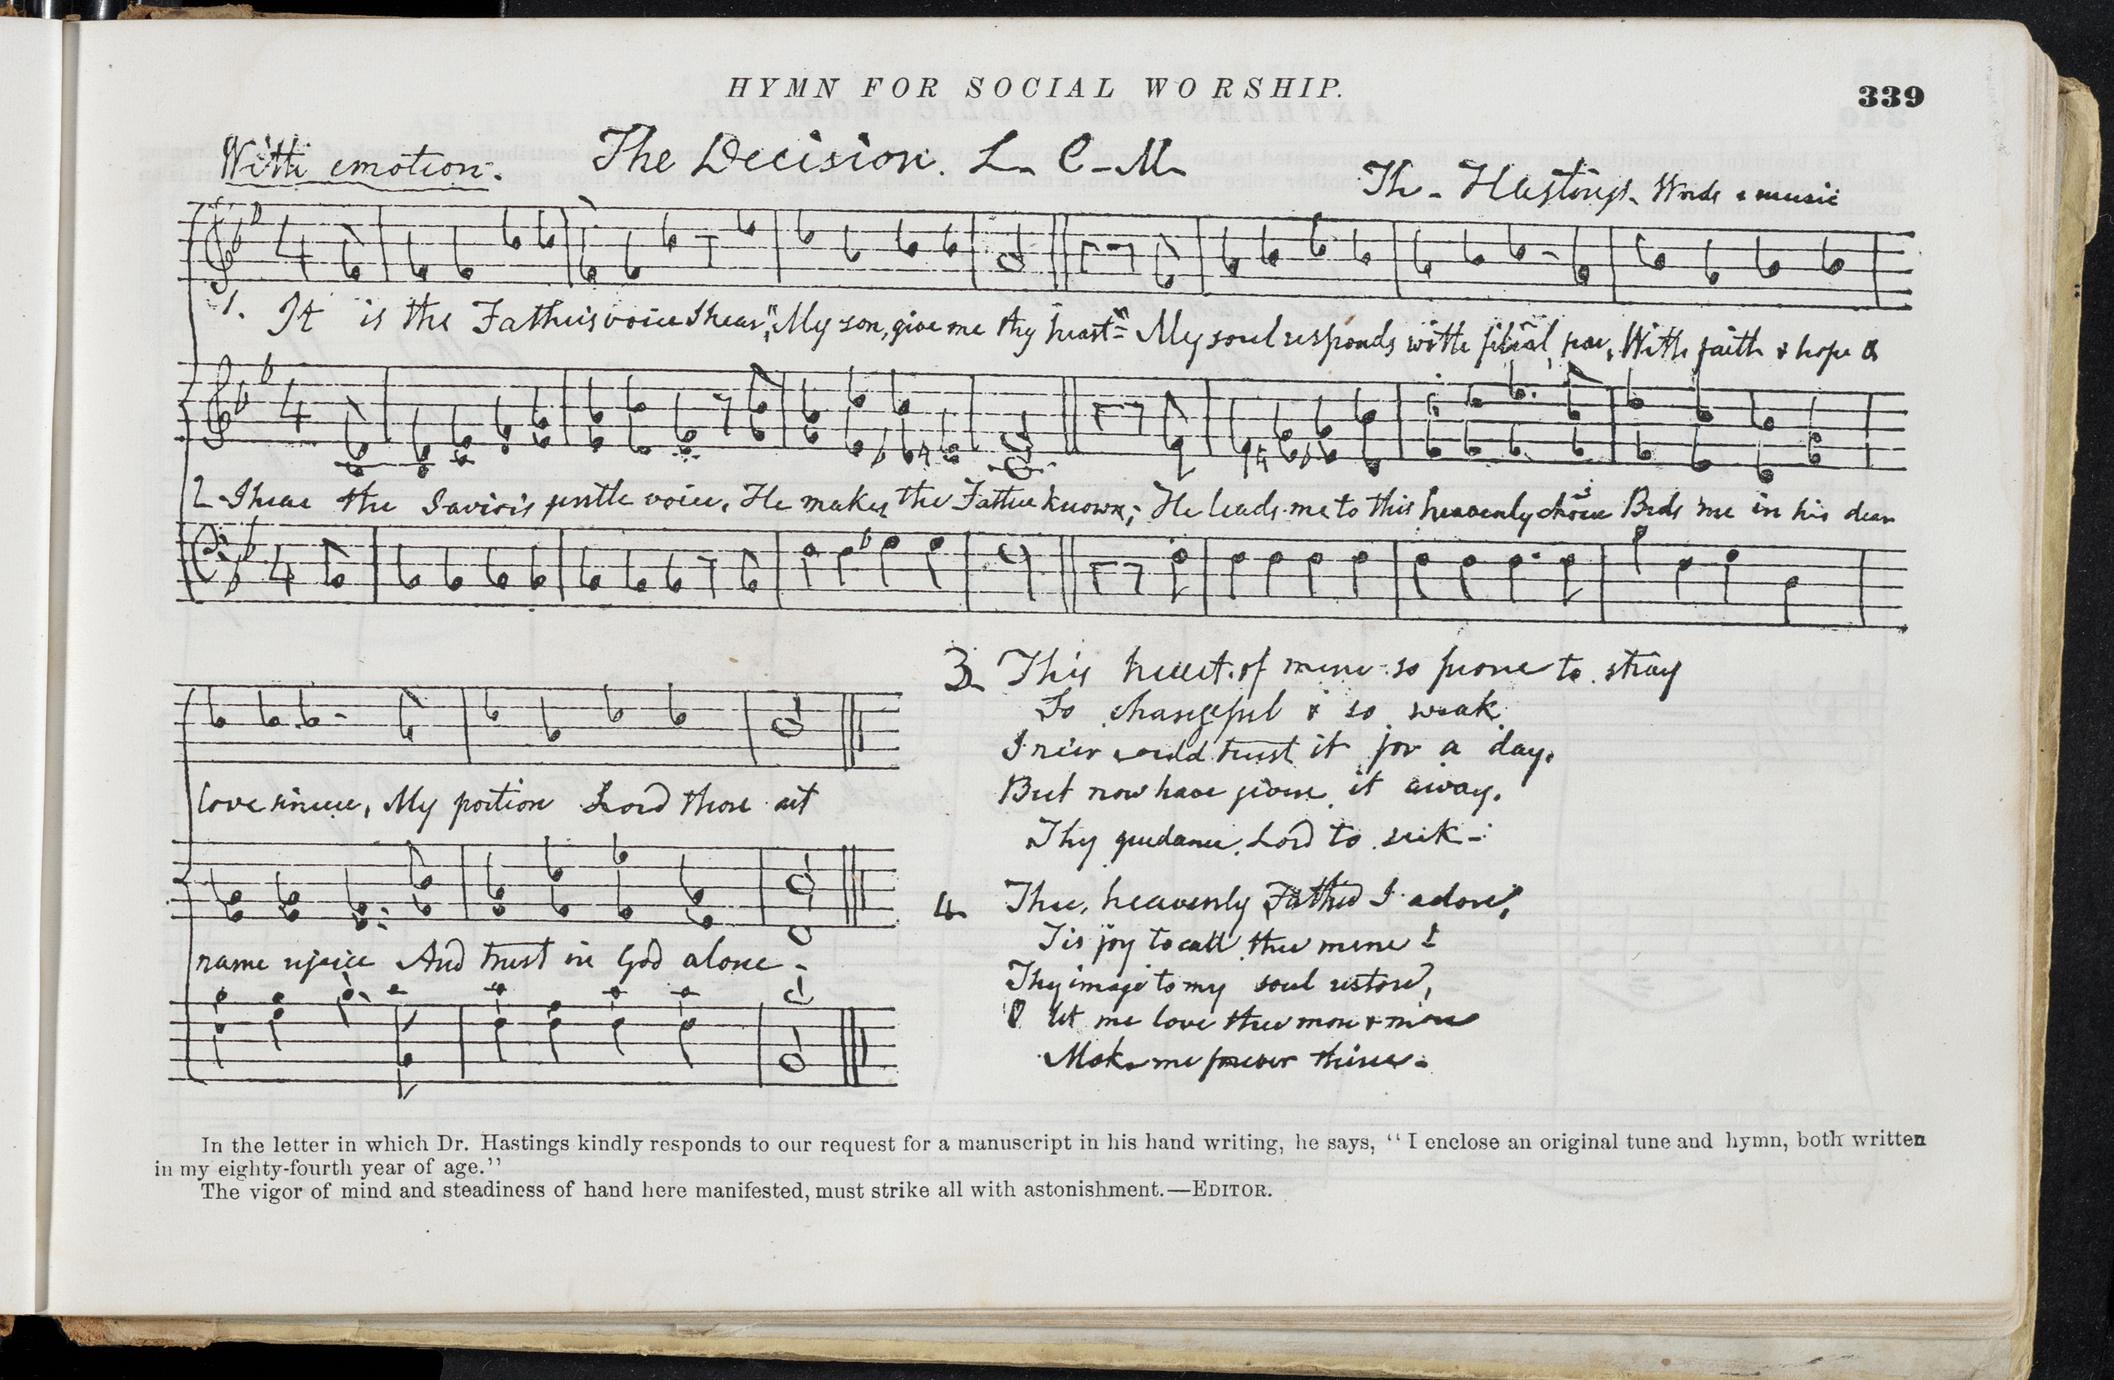 HYMN FOR SOCIAL WORSHIP.
339
With emotion.
The Decision. L. C. M.
Th. Hastings. Words & music
1. It is the Father's voice I hear, "My son, give me thy heart" = My soul responds with filial fear, With faith & hope &
2 I hear the Savior's gentle voice, He makes the Father known; He leads me to this heavenly choice Bids me in his dear
love sincere, My portion Lord thou art
name rejoice And trust in God alone -
3. This heart of mine so prone to stray
So changeful & so weak
I ne'er could trust it for a day,
But now have given it away,
Thy guidance Lord to seek -
4. Thee, heavenly Father I adore,
Tis joy to call thee mine !
Thy image to my soul restore,
O let me love thee more & more
Make me forever thine -
In the letter in which Dr. Hastings kindly responds to our request for a manuscript in his hand writing, he says, "I enclose an original tune and hymn, both written
in my eighty-fourth year of age."
The vigor of mind and steadiness of hand here manifested, must strike all with astonishment.—EDITOR.